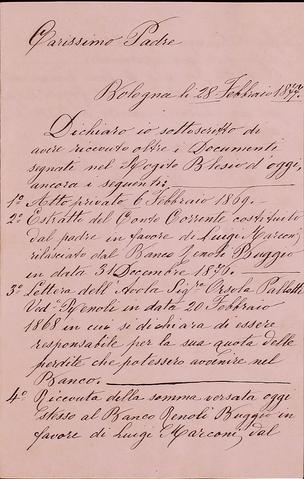 Carissimo Padre
Bologna li 28 Febbraio 1877.
Dichiaro io sottoscritto di
avere ricevuto oltre i Documenti
segnati nel Rogito Blesio d'oggi,
ancora i seguenti:
1º Atto privato 6 Febbraio 1869.
2º Estratto del Conto Corrente costituito
dal padre in favore di Luigi Marconi,
rilasciato dal Banco Renoli Buggio
in data 31 Decembre 1876.
3º Lettera dell' Avola Sigra Orsola Pallotti
Veda Renoli in data 20 Febbraio
1868 in cui si dichiara di essere
responsabile per la sua quota delle
perdite che potessero avvenire nel
Banco.
4º Ricevuta della somma versata oggi
stesso al Banco Renoli Buggio in
favore di Luigi Marconi, dal